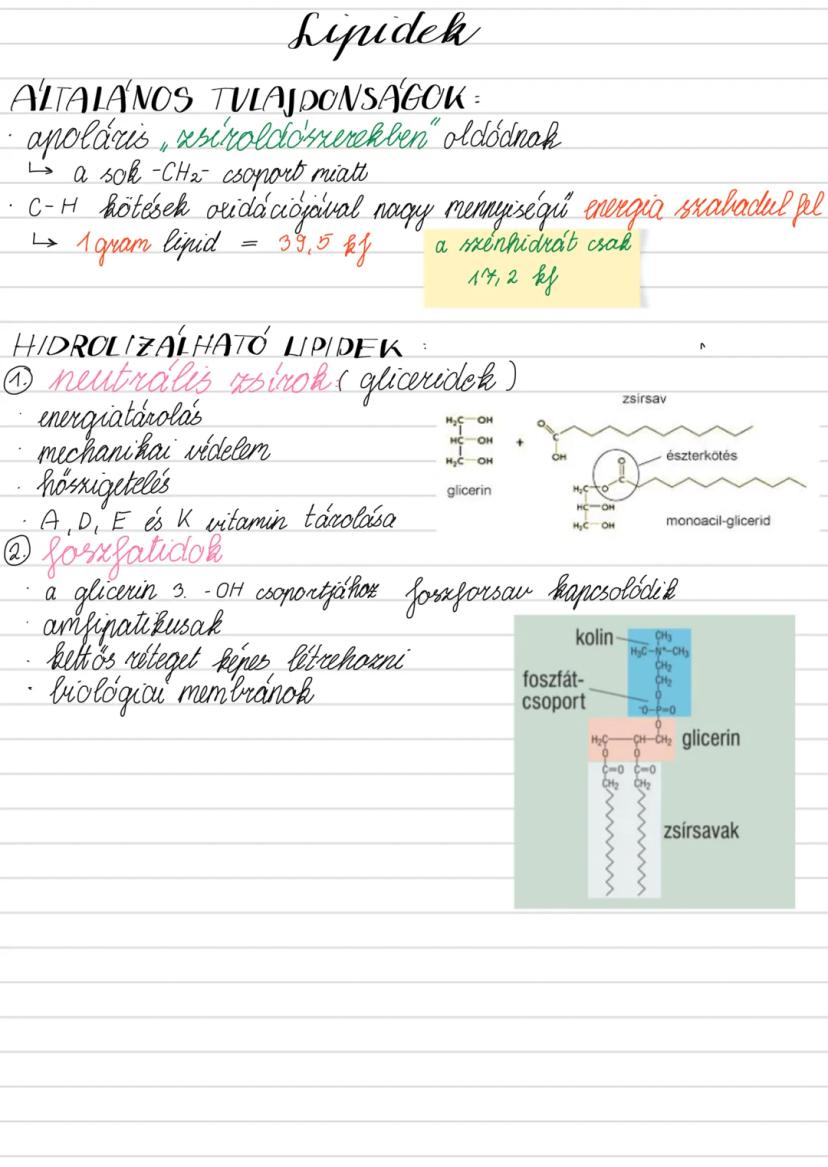 Lipidek
ÁLTALÁNOS TULAJDONSÁGOK:
· apoláris „zsíroldószerekben" oldódnak
↳ a sok -CH2- csoport miatt
· C-H kötések oxidációjával nagy mennyiségű energia szabadul fel
↳ 1 gram lipid = 39,5 kJ
a szénhidrát csak
17,2 kJ
HIDROLIZÁLHATÓ LIPIDEK:
1. neutrális zsírok (gliceridek)
· energiatárolás
· mechanikai védelem
· hőszigetelés
· A, D, E és K vitamin tárolása
zsirsav
H2C-OH
HC-OH
H2C-OH
+
O
C
OH
glicerin
észterkötés
O
H2C-O-C
HC-OH
H2C-OH
monoacil-glicerid
2. foszfatidok
· a glicerin 3. -OH csoportjához foszforsav kapcsolódik
· amfipatikusak
· kettős réteget képes létrehozni
· biológiai membránok
kolin
CH3
H3C-N+-CH3
CH2
CH2
O
foszfát-
csoport
-O-P=O
O
H2C-CH-CH2 glicerin
O O
C=O C=O
CH2 CH2
zsírsavak